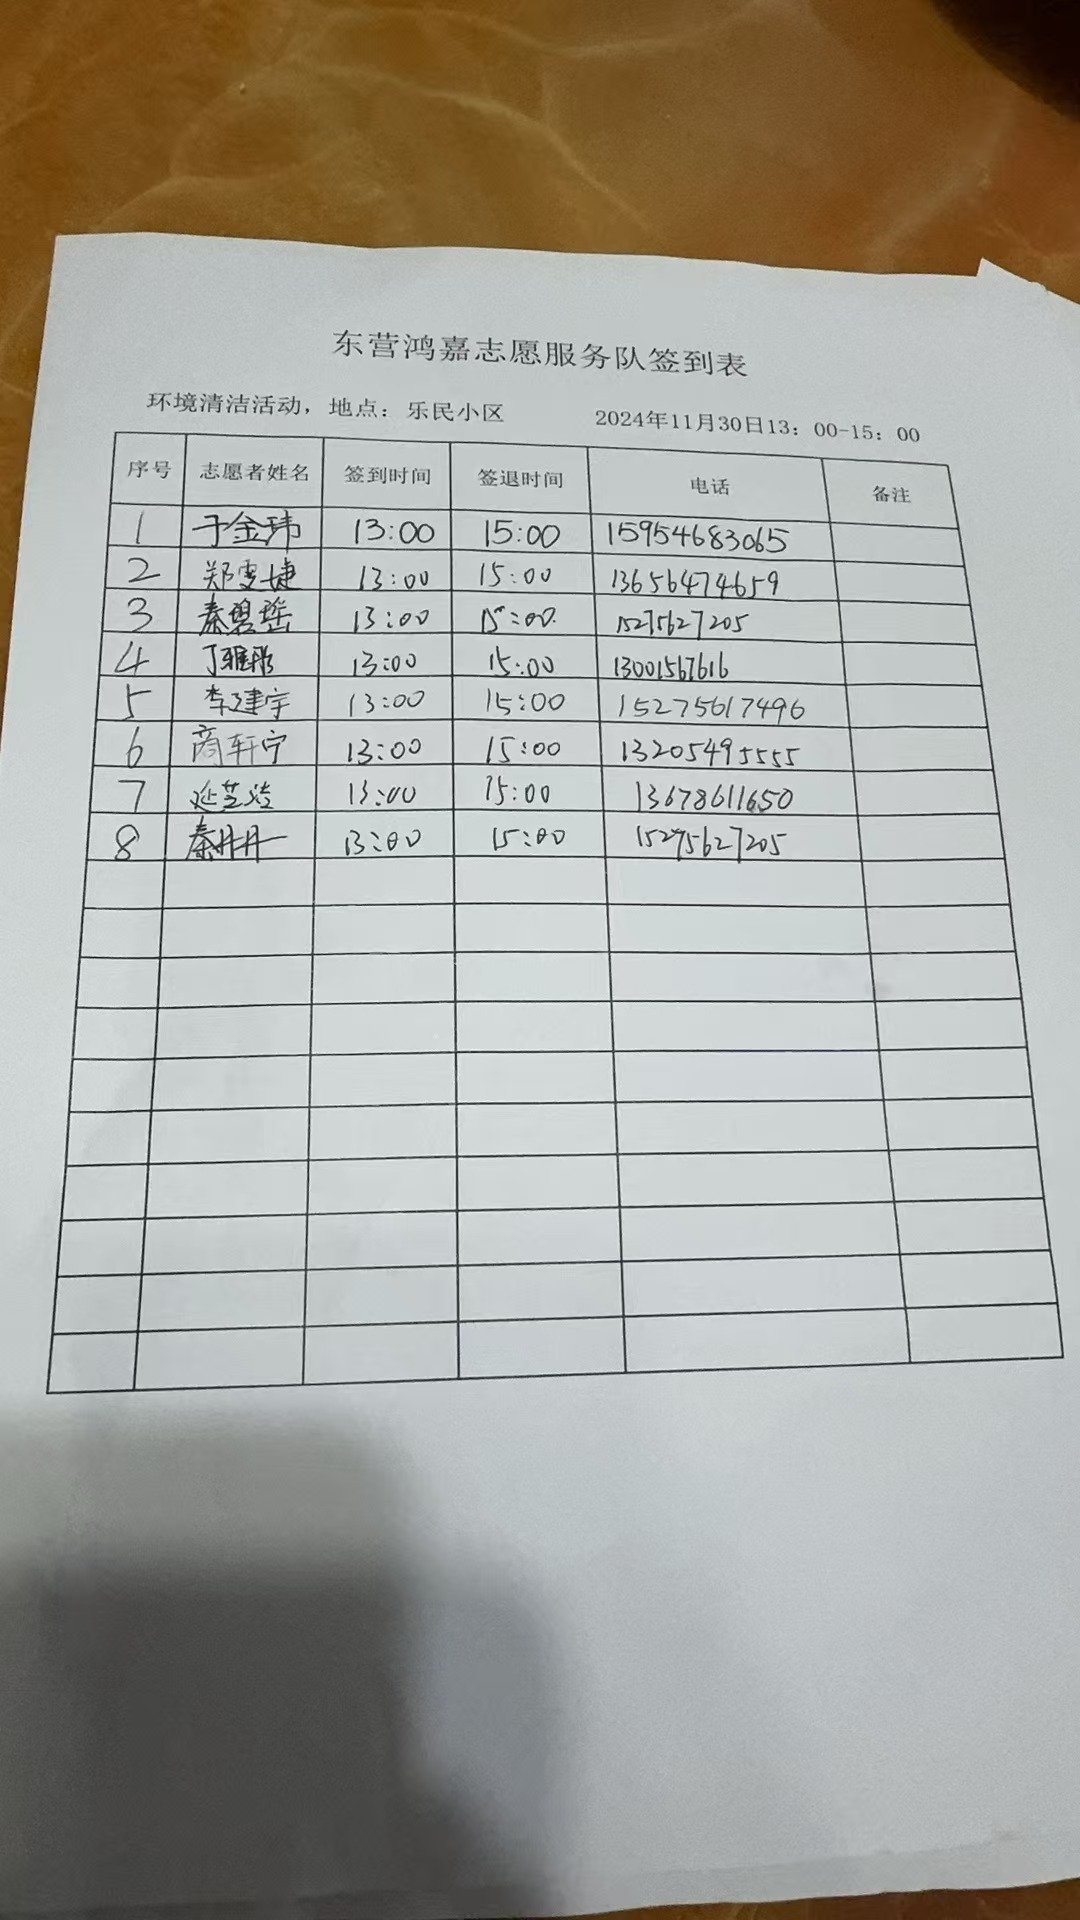 东营鸿嘉志愿服务队签到表
环境清洁活动，地点：乐民小区 2024年11月30日13：00-15：00
序号 志愿者姓名 签到时间 签退时间 电话 备注
1 于金玮 13:00 15:00 15954683065
2 郑雯婕 13:00 15:00 13656474659
3 秦碧瑶 13:00 15:00 15275627205
4 丁雅彤 13:00 15:00 13001567616
5 李建宇 13:00 15:00 15275617496
6 商轩宁 13:00 15:00 13205495555
7 延芝 13:00 15:00 13678611650
8 秦丹丹 13:00 15:00 15275627205